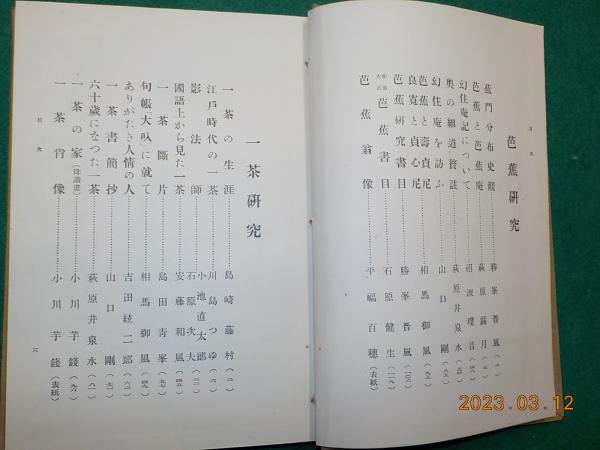 目次
芭蕉硏究
蕉門分布史觀……………勝峯晉風
芭蕉と芭蕉庵……………萩原蘿月
幻住庵記について……………沼波瓊音
奧の細道贅註……………萩原井泉水
幻住庵を訪ふ……………山口剛
芭蕉と壽貞尼……………相馬御風
良寬と貞心尼
芭蕉硏究書目……………勝峯晉風
明治大正芭蕉書目……………石原健生
芭蕉翁像……………平福百穗(表紙)
一茶硏究
一茶の生涯……………島崎藤村
江戶時代の一茶……………川島つゆ
影法師……………小池直太郎
國語上から見た一茶……………石原次夫
一茶斷片……………安藤和風
句帳「大叺」に就て……………島田靑峯
ありがたき人情の人……………相馬御風
一茶書簡抄……………吉田絃二郎
六十歲になつた一茶……………山口剛
一茶の家(俳譜畫)……………萩原井泉水
一茶肖像……………小川芋錢
小川芋錢(表紙)
目次
2023.03.12